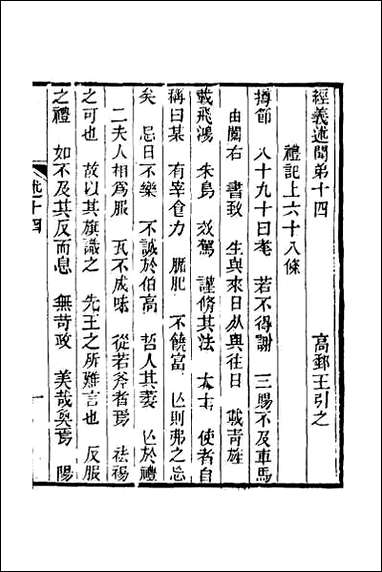 經義述聞弟十四　高郵王引之
禮記上六十八條
撙節　八十九十曰耄　若不得謝　三賜不及車馬
由闑右　書致　生與來日死與往日　載青旌
載飛鴻　朱鳥　效駕　謹脩其法　大士　使者自
稱曰某　有宰食力　腯肥　不饒富　亡則弗之忘
矣　忌日不樂　不誠於伯高　哲人其萎　亡於禮
二夫人相爲服　瓦不成味　從若斧者焉　祛裼
之可也　故以其旗識之　先王之所難言也　反服
之禮　如不及其反而息　無苛政　美哉奐焉　陽
述十四
一